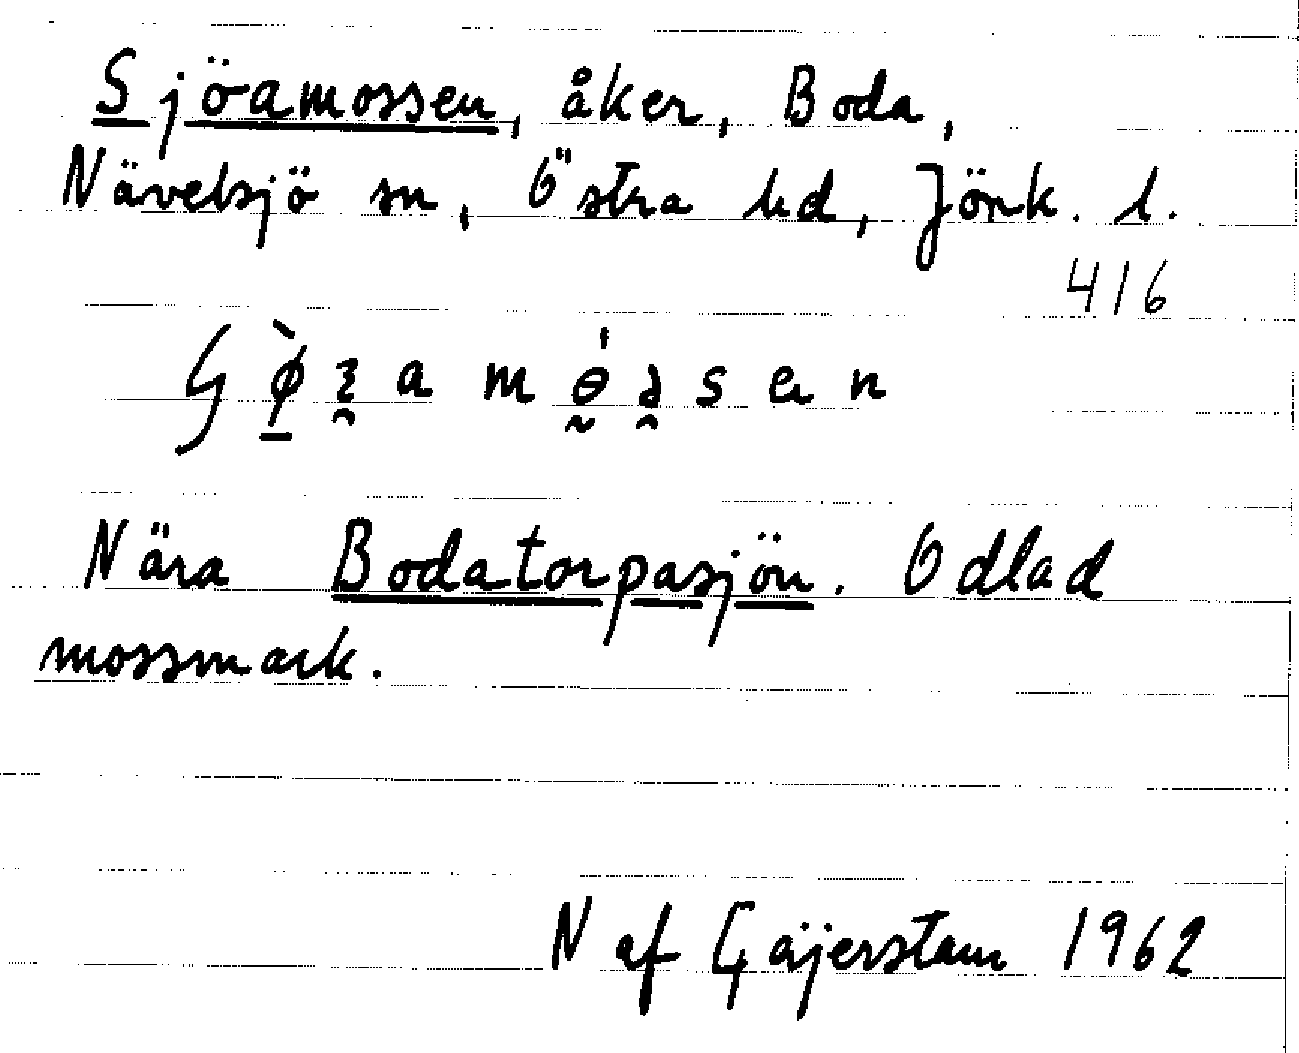 Sjöamossen, åker, Boda,
Nävelsjö sn, Östra hd, Jönk. l.
416
Nära Bodatorpasjön. Odlad
mossmark.
N af Gäjerstam 1962